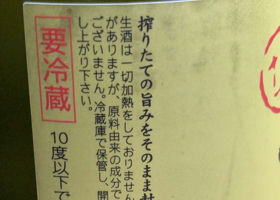 搾りたての旨みをそのまま
生酒は一切加熱をしておりません
がありますが、原料由来の成分で
ございません。冷蔵庫で保管し、開
し上がり下さい。
要冷蔵
10度以下で